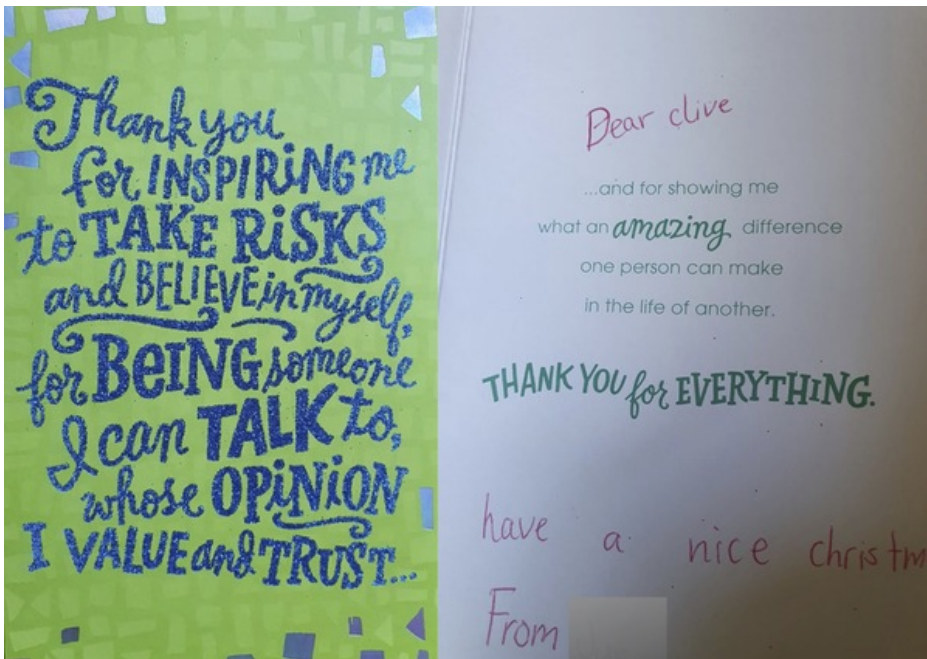 Thank you
for INSPIRING me
to TAKE RISKS
and BELIEVE in myself,
for BEING someone
I can TALK to,
whose OPINION
I VALUE and TRUST...
Dear clive
...and for showing me
what an amazing difference
one person can make
in the life of another.
THANK YOU for EVERYTHING.
have a nice christm
From